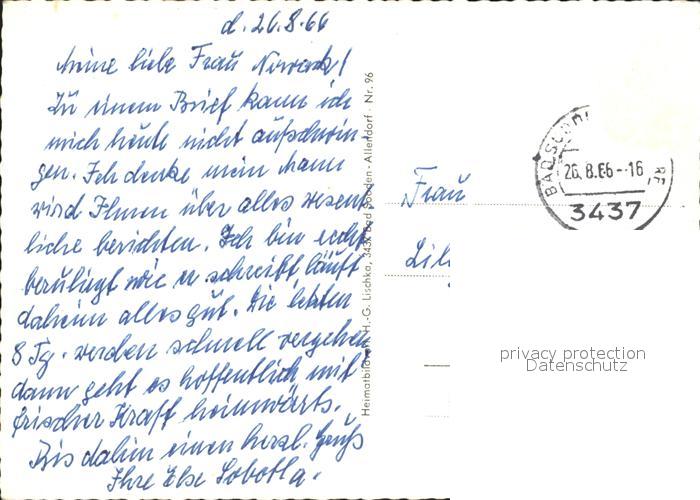 d. 26.8.66
Meine liebe Frau Nowack!
Zu einem Brief kann ich
mich heute nicht aufschwin-
gen. Ich denke mein Mann
wird Ihnen über alles wesent
liche berichten. Ich bin recht
beruhigt wie er schreibt läuft
daheim alles gut. Die letzten
8 Tg. werden schnell vergehen
dann geht es hoffentlich mit
frischer Kraft heimwärts.
Bis dahin einen herzl. Gruß
Ihre Else Sobotta.
Heimatbildverlag H.-G. Lischka, 3437 Bad Sooden-Allendorf · Nr. 96
BAD SOODEN
26.8.66--16
3437
Frau
privacy protection
Datenschutz